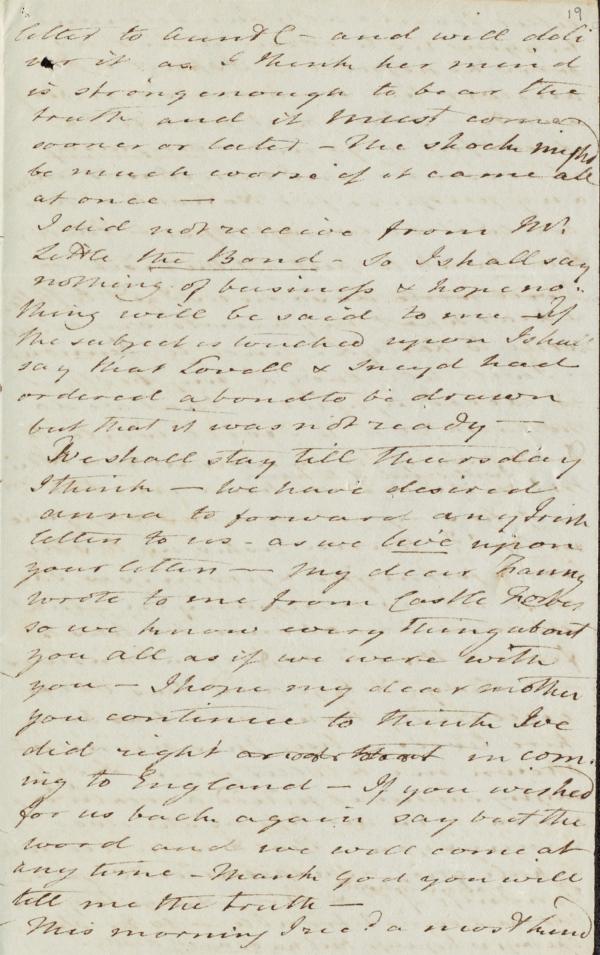 19
letter to Aunt C - and will deli
ver it as I think her mind
is strong enough to bear the
truth and it must come
sooner or later - The shock might
be much worse if it came all
at once -
I did not receive from Mr.
Little the Bond - so I shall say
nothing of business & hope no-
thing will be said to me - If
the subject is touched upon I shall
say that Lovell & Sneyd had
ordered a bond to be drawn
but that it was not ready -
We shall stay till Thursday
I think - We have desired
Anna to forward any Irish
letters to us - as we live upon
your letters - My dear Fanny
wrote to me from Castle Forbes
so we know every thing about
you all as if we were with
you - I hope my dear mother
you continue to think I've
did right in com-
ing to England - If you wished
for us back again say but the
word and we will come at
any time - Thank God you will
tell me the truth -
This morning I recd a most kind